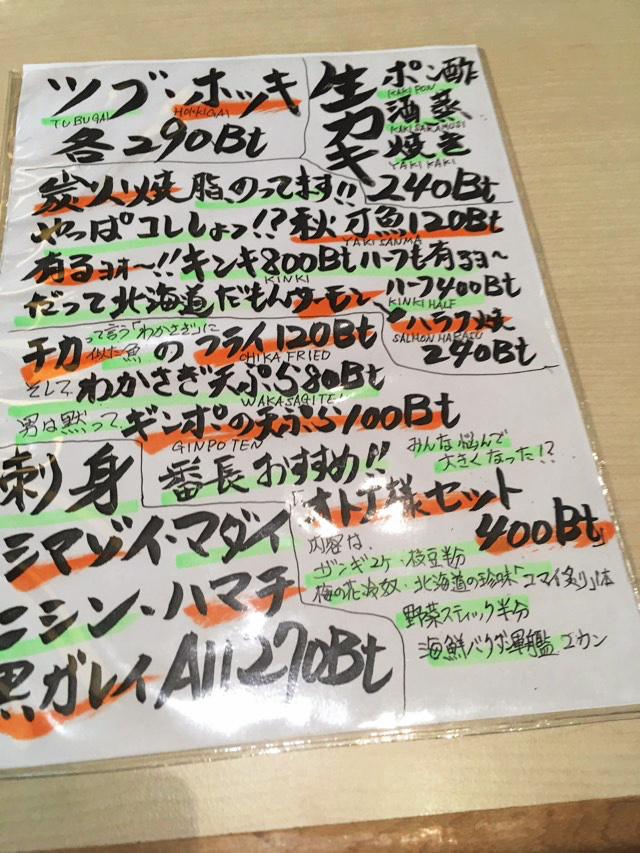 ツブ・ホッキ
TUBUGAI HOKKIGAI
各290Bt
生カキ
ポン酢
KAKI PON
酒蒸
KAKI SAKAMUSI
焼き
YAKI KAKI
240Bt
炭火焼 脂のってます!!
やっぱコレしょっ!?秋刀魚120Bt
YAKI SANMA
有るヨォ〜!!キンキ800Btハーフも有るヨ〜
KINKI
ハーフ400Bt
KINKI HALF
だって北海道だもん
サーモンハラス焼
SALMON HARASU
240Bt
チカって言う「わかさぎ」に似た魚のフライ120Bt
CHIKA FRIED
そしてわかさぎ天ぷら80Bt
WAKASAGI TE
男は黙ってギンポの天ぷら100Bt
GINPO TEN
刺身
シマゾイ・マダイ
ニシン・ハマチ
黒ガレイ All 270Bt
番長おすすめ!!
みんな悩んで
大きくなった!?
「オトナ様セット
400Bt」
内容は、
ザンギ2ケ・枝豆半分
梅の花冷奴・北海道の珍味「コマイ炙り」1本
野菜スティック半分
海鮮バクダン軍艦 2カン